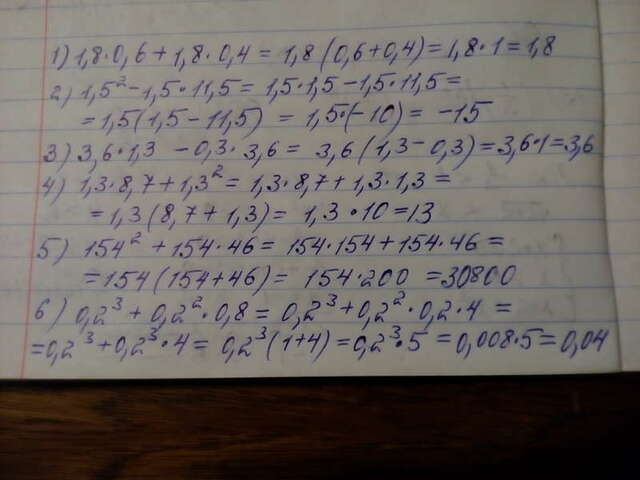 1) 1,8·0,6 + 1,8·0,4 = 1,8(0,6+0,4) = 1,8·1 = 1,8
2) 1,5² - 1,5·11,5 = 1,5·1,5 - 1,5·11,5 =
= 1,5(1,5 - 11,5) = 1,5·(-10) = -15
3) 3,6·1,3 - 0,3·3,6 = 3,6(1,3 - 0,3) = 3,6·1 = 3,6
4) 1,3·8,7 + 1,3² = 1,3·8,7 + 1,3·1,3 =
= 1,3(8,7 + 1,3) = 1,3·10 = 13
5) 154² + 154·46 = 154·154 + 154·46 =
= 154(154+46) = 154·200 = 30800
6) 0,2³ + 0,2²·0,8 = 0,2³ + 0,2²·0,2·4 =
= 0,2³ + 0,2³·4 = 0,2³(1+4) = 0,2³·5 = 0,008·5 = 0,04